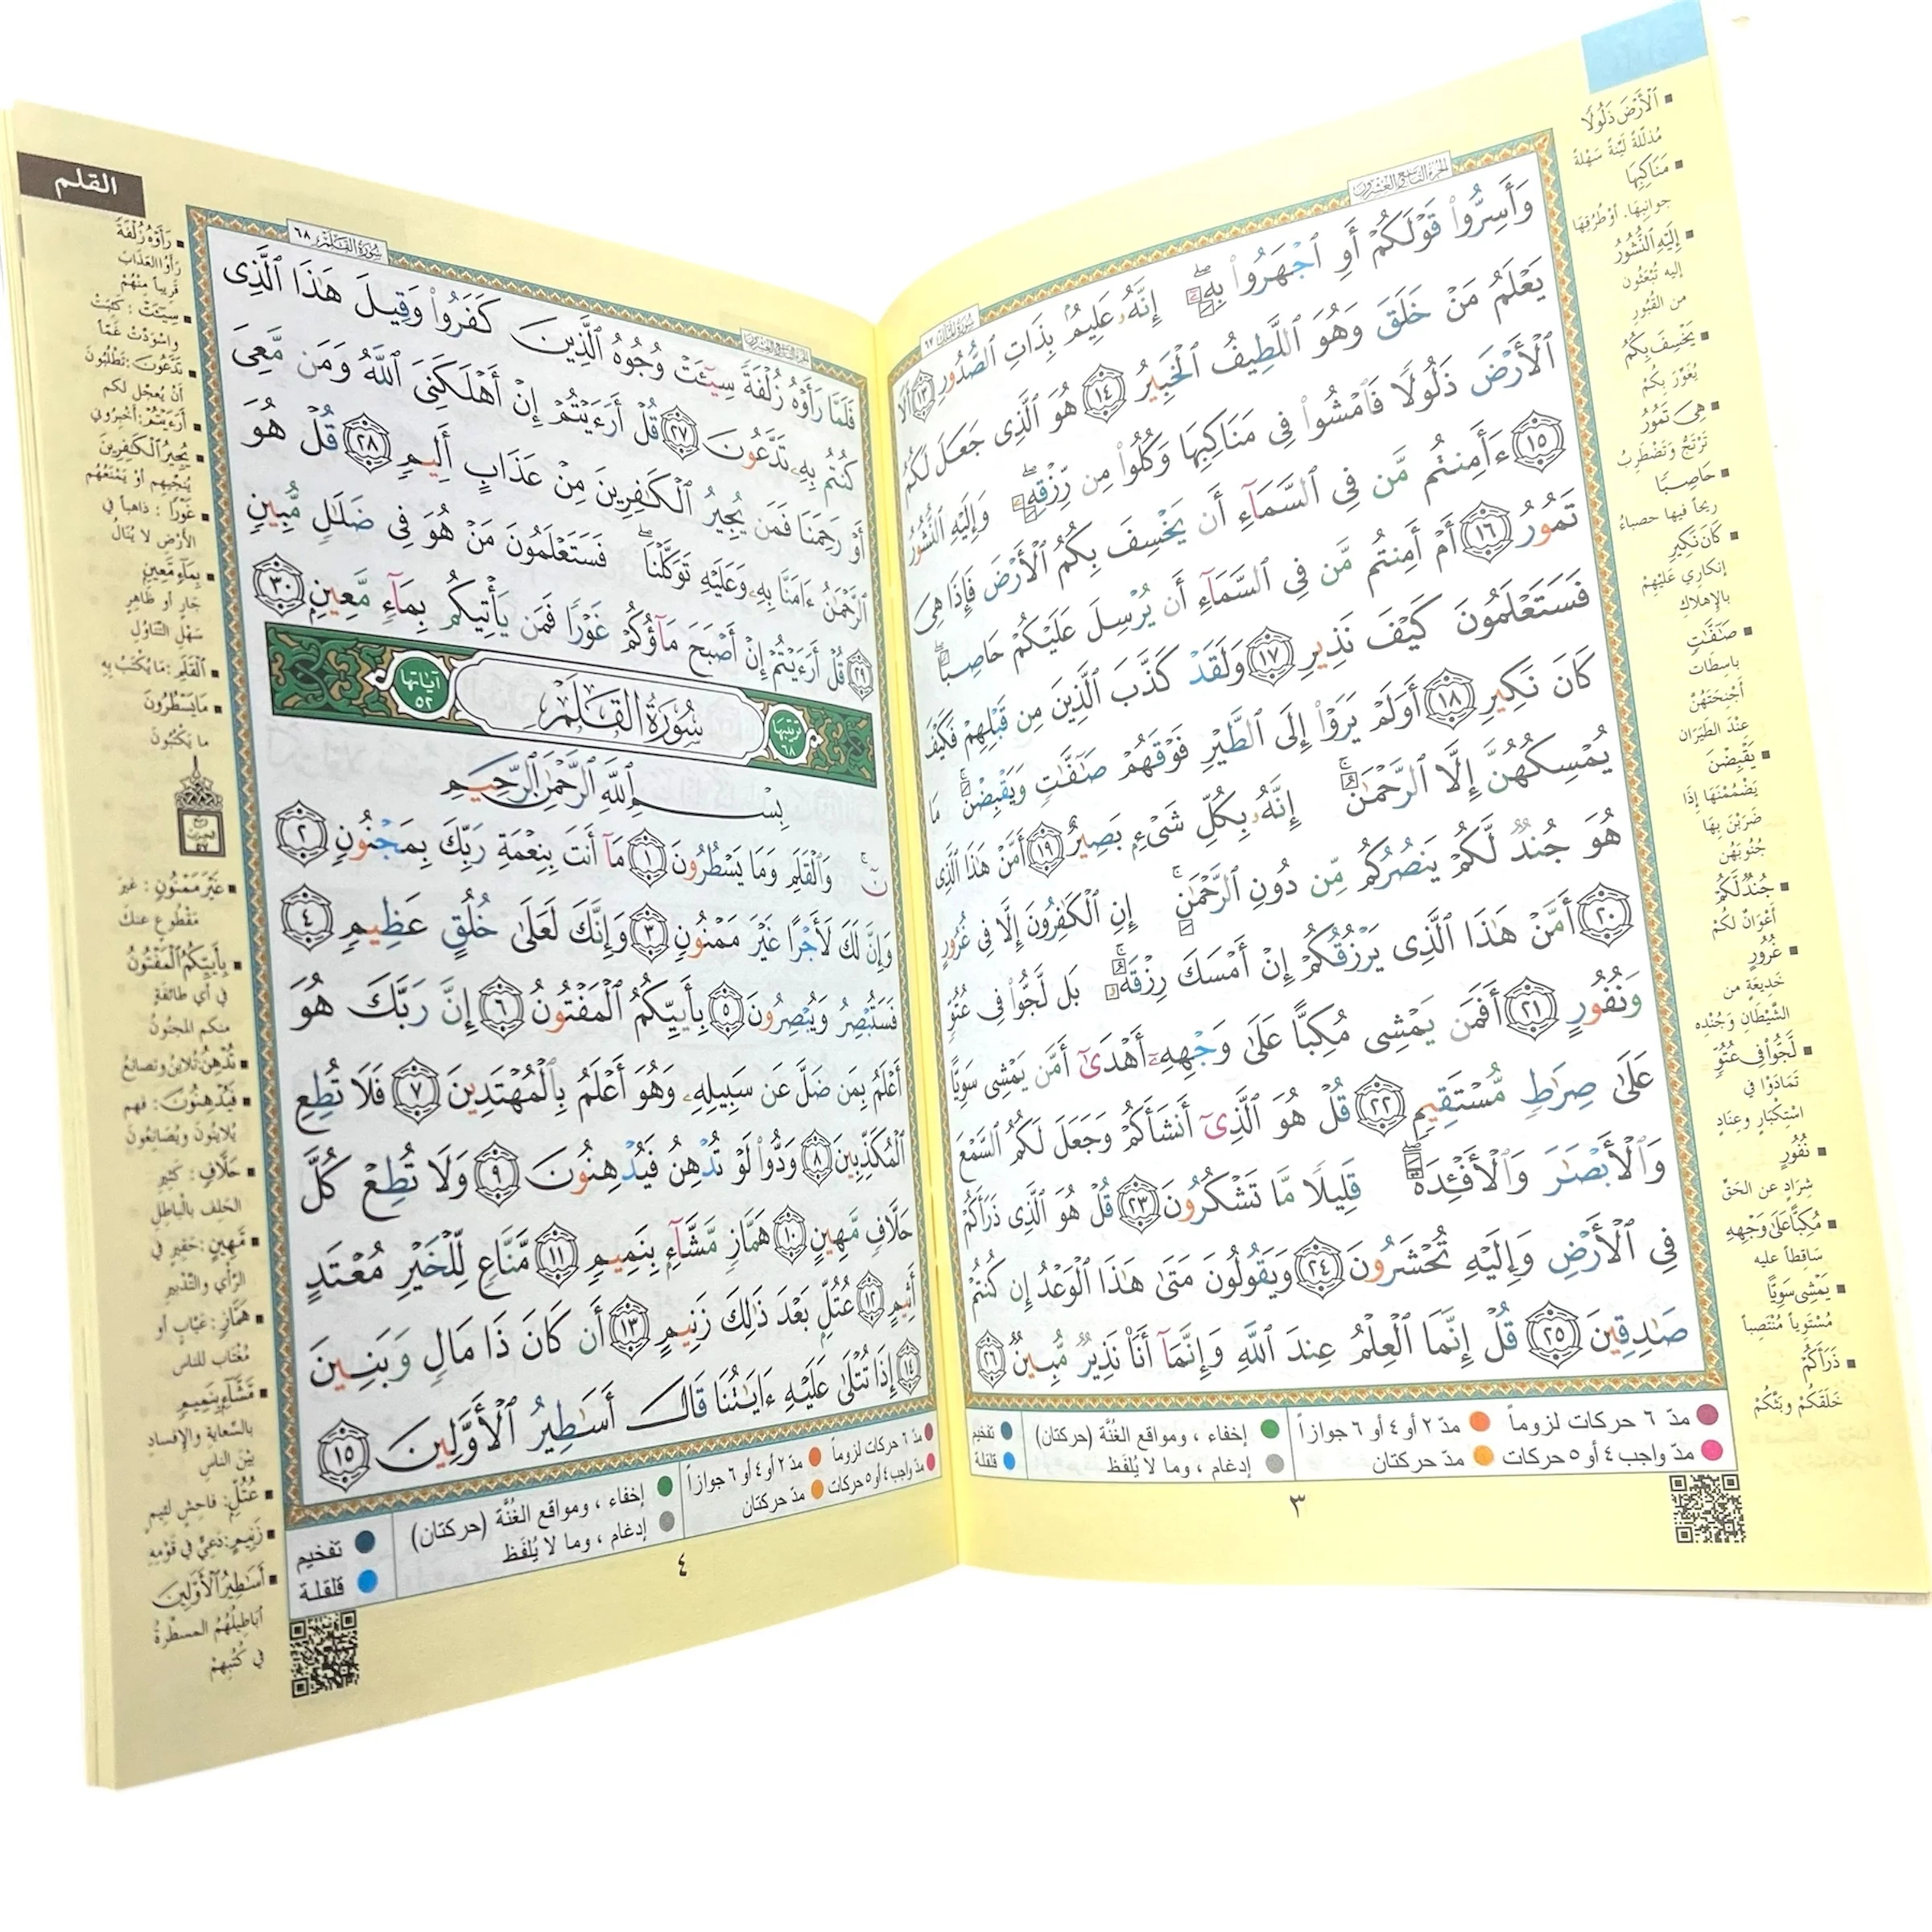 الجزء التاسع والعشرون
سورة الملك ٦٧
وَأَسِرُّوا۟ قَوْلَكُمْ أَوِ ٱجْهَرُوا۟ بِهِۦٓ ۖ إِنَّهُۥ عَلِيمٌۢ بِذَاتِ ٱلصُّدُورِ ١٣ أَلَا
يَعْلَمُ مَنْ خَلَقَ وَهُوَ ٱللَّطِيفُ ٱلْخَبِيرُ ١٤ هُوَ ٱلَّذِى جَعَلَ لَكُمُ
ٱلْأَرْضَ ذَلُولًا فَٱمْشُوا۟ فِى مَنَاكِبِهَا وَكُلُوا۟ مِن رِّزْقِهِۦ ۖ وَإِلَيْهِ ٱلنُّشُورُ
١٥ ءَأَمِنتُم مَّن فِى ٱلسَّمَآءِ أَن يَخْسِفَ بِكُمُ ٱلْأَرْضَ فَإِذَا هِىَ
تَمُورُ ١٦ أَمْ أَمِنتُم مَّن فِى ٱلسَّمَآءِ أَن يُرْسِلَ عَلَيْكُمْ حَاصِبًا ۖ
فَسَتَعْلَمُونَ كَيْفَ نَذِيرِ ١٧ وَلَقَدْ كَذَّبَ ٱلَّذِينَ مِن قَبْلِهِمْ فَكَيْفَ
كَانَ نَكِيرِ ١٨ أَوَلَمْ يَرَوْا۟ إِلَى ٱلطَّيْرِ فَوْقَهُمْ صَٰٓفَّٰتٍ وَيَقْبِضْنَ ۚ مَا
يُمْسِكُهُنَّ إِلَّا ٱلرَّحْمَٰنُ ۚ إِنَّهُۥ بِكُلِّ شَىْءٍۭ بَصِيرٌ ١٩ أَمَّنْ هَٰذَا ٱلَّذِى
هُوَ جُندٌ لَّكُمْ يَنصُرُكُم مِّن دُونِ ٱلرَّحْمَٰنِ ۚ إِنِ ٱلْكَٰفِرُونَ إِلَّا فِى غُرُورٍ
٢٠ أَمَّنْ هَٰذَا ٱلَّذِى يَرْزُقُكُمْ إِنْ أَمْسَكَ رِزْقَهُۥ ۚ بَل لَّجُّوا۟ فِى عُتُوٍّ
وَنُفُورٍ ٢١ أَفَمَن يَمْشِى مُكِبًّا عَلَىٰ وَجْهِهِۦٓ أَهْدَىٰٓ أَمَّن يَمْشِى سَوِيًّا
عَلَىٰ صِرَٰطٍ مُّسْتَقِيمٍ ٢٢ قُلْ هُوَ ٱلَّذِىٓ أَنشَأَكُمْ وَجَعَلَ لَكُمُ ٱلسَّمْعَ
وَٱلْأَبْصَٰرَ وَٱلْأَفْـِٔدَةَ ۖ قَلِيلًا مَّا تَشْكُرُونَ ٢٣ قُلْ هُوَ ٱلَّذِى ذَرَأَكُمْ
فِى ٱلْأَرْضِ وَإِلَيْهِ تُحْشَرُونَ ٢٤ وَيَقُولُونَ مَتَىٰ هَٰذَا ٱلْوَعْدُ إِن كُنتُمْ
صَٰدِقِينَ ٢٥ قُلْ إِنَّمَا ٱلْعِلْمُ عِندَ ٱللَّهِ وَإِنَّمَآ أَنَا۠ نَذِيرٌ مُّبِينٌ ٢٦
مدّ ٦ حركات لزوماً مدّ ٢ أو ٤ أو ٦ جوازاً إخفاء ، ومواقع الغُنَّة (حركتان) تفخيم
مدّ واجب ٤ أو ٥ حركات مدّ حركتان إدغام ، وما لا يُلفَظ قلقلة
٣
ٱلْأَرْضَ ذَلُولًا
مُذَلَّلةً لَيِّنةً سَهْلةً
مَنَاكِبِهَا
جوانِبِهَا، أوْ طُرُقِهَا
إِلَيْهِ ٱلنُّشُورُ
إليه تُبْعَثُون
من القُبُورِ
يَخْسِفَ بِكُمُ
يُغَوِّرَ بِكُمْ
هِىَ تَمُورُ
تَرْتَجُّ وَتَضْطَرِبُ
حَاصِبًا
ريحاً فيها حصباءُ
كَانَ نَكِيرِ
إنكاري عَلَيْهِمْ
بالإهلاك
صَٰٓفَّٰتٍ
باسِطَاتٍ
أجْنِحَتَهُنَّ
عنْدَ الطَيَرَانِ
يَقْبِضْنَ
يَضْمُمْنَهَا إذَا
ضَرَبْنَ بِهَا
جُنُوبَهُن
جُندٌ لَّكُمْ
أَعْوَانٌ لكُمْ
غُرُورٍ
خَدِيعَةٍ من
الشَّيْطَانِ وَجُنْدِه
لَّجُّوا۟ فِى عُتُوٍّ
تَمَادَوْا في
اسْتِكْبَارٍ وعِنَادٍ
نُفُورٍ
شِرَادٍ عن الحَقِّ
مُكِبًّا عَلَىٰ وَجْهِهِۦ
سَاقِطاً عليه
يَمْشِى سَوِيًّا
مُسْتَوِياً مُنْتَصِباً
ذَرَأَكُمْ
خَلَقَكُمْ وبَثَّكُمْ
القلم
الجزء التاسع والعشرون
سورة القلم ٦٨
فَلَمَّا رَأَوْهُ زُلْفَةً سِيٓـَٔتْ وُجُوهُ ٱلَّذِينَ كَفَرُوا۟ وَقِيلَ هَٰذَا ٱلَّذِى
كُنتُم بِهِۦ تَدَّعُونَ ٢٧ قُلْ أَرَءَيْتُمْ إِنْ أَهْلَكَنِىَ ٱللَّهُ وَمَن مَّعِىَ
أَوْ رَحِمَنَا فَمَن يُجِيرُ ٱلْكَٰفِرِينَ مِنْ عَذَابٍ أَلِيمٍ ٢٨ قُلْ هُوَ
ٱلرَّحْمَٰنُ ءَامَنَّا بِهِۦ وَعَلَيْهِ تَوَكَّلْنَا ۖ فَسَتَعْلَمُونَ مَنْ هُوَ فِى ضَلَٰلٍ مُّبِينٍ
٢٩ قُلْ أَرَءَيْتُمْ إِنْ أَصْبَحَ مَآؤُكُمْ غَوْرًا فَمَن يَأْتِيكُم بِمَآءٍ مَّعِينٍۭ ٣٠
ترتيبها ٦٨ سُورَةُ القَلَمِ آياتها ٥٢
بِسْمِ ٱللَّهِ ٱلرَّحْمَٰنِ ٱلرَّحِيمِ
نٓ ۚ وَٱلْقَلَمِ وَمَا يَسْطُرُونَ ١ مَآ أَنتَ بِنِعْمَةِ رَبِّكَ بِمَجْنُونٍ ٢
وَإِنَّ لَكَ لَأَجْرًا غَيْرَ مَمْنُونٍ ٣ وَإِنَّكَ لَعَلَىٰ خُلُقٍ عَظِيمٍ ٤
فَسَتُبْصِرُ وَيُبْصِرُونَ ٥ بِأَييِّكُمُ ٱلْمَفْتُونُ ٦ إِنَّ رَبَّكَ هُوَ
أَعْلَمُ بِمَن ضَلَّ عَن سَبِيلِهِۦ وَهُوَ أَعْلَمُ بِٱلْمُهْتَدِينَ ٧ فَلَا تُطِعِ
ٱلْمُكَذِّبِينَ ٨ وَدُّوا۟ لَوْ تُدْهِنُ فَيُدْهِنُونَ ٩ وَلَا تُطِعْ كُلَّ
حَلَّافٍ مَّهِينٍ ١٠ هَمَّازٍ مَّشَّآءٍۭ بِنَمِيمٍ ١١ مَّنَّاعٍ لِّلْخَيْرِ مُعْتَدٍ
أَثِيمٍ ١٢ عُتُلٍّۭ بَعْدَ ذَٰلِكَ زَنِيمٍ ١٣ أَن كَانَ ذَا مَالٍ وَبَنِينَ
١٤ إِذَا تُتْلَىٰ عَلَيْهِ ءَايَٰتُنَا قَالَ أَسَٰطِيرُ ٱلْأَوَّلِينَ ١٥
مدّ ٦ حركات لزوماً مدّ ٢ أو ٤ أو ٦ جوازاً إخفاء ، ومواقع الغُنَّة (حركتان) تفخيم
مدّ واجب ٤ أو ٥ حركات مدّ حركتان إدغام ، وما لا يُلفَظ قلقلة
٤
رَأَوْهُ زُلْفَةً
رَأوُا العَذَابَ
قَرِيباً مِنْهُمْ
سِيٓـَٔتْ : كَئِبَتْ
واسْوَدَّتْ غَمّاً
تَدَّعُونَ : تَطْلُبُونَ
أنْ يُعجَّل لكم
أَرَءَيْتُمْ : أخْبِرُوني
يُجِيرُ ٱلْكَٰفِرِينَ
يُنَجِّيهم أوْ يَمْنَعُهُم
غَوْرًا : ذاهباً في
الأرْضِ لا يُنَالُ
بِمَآءٍ مَّعِينٍ
جَارٍ أو ظَاهِرٍ
سَهْلِ التَّنَاوُلِ
ٱلْقَلَمِ : مَا يُكْتَبُ بِهِ
مَا يَسْطُرُونَ
ما يَكْتُبُونَ
غَيْرَ مَمْنُونٍ : غيرَ
مَقْطُوعٍ عنكَ
بِأَييِّكُمُ ٱلْمَفْتُونُ
في أي طائفةٍ
منكم المجنُونُ
تُدْهِنُ : تُلاينُ وتصانعُ
فَيُدْهِنُونَ : فهم
يُلايِنُونَ ويُصَانِعُونَ
حَلَّافٍ : كثيرِ
الحَلِفِ بالباطِلِ
مَّهِينٍ : حَقِيرٍ في
الرَّأي والتَّدْبيرِ
هَمَّازٍ : عَيَّابٍ أو
مُغْتَابٍ للناس
مَّشَّآءٍۭ بِنَمِيمٍ
بالسِّعَايةِ والإفسادِ
بَيْنَ الناسِ
عُتُلٍّ : فاحِشٍ لئِيمٍ
زَنِيمٍ : دَعِيٍّ في قَوْمِهِ
أَسَٰطِيرُ ٱلْأَوَّلِينَ
أبَاطِيلُهُمُ المسطَّرةُ
في كُتُبِهِمْ